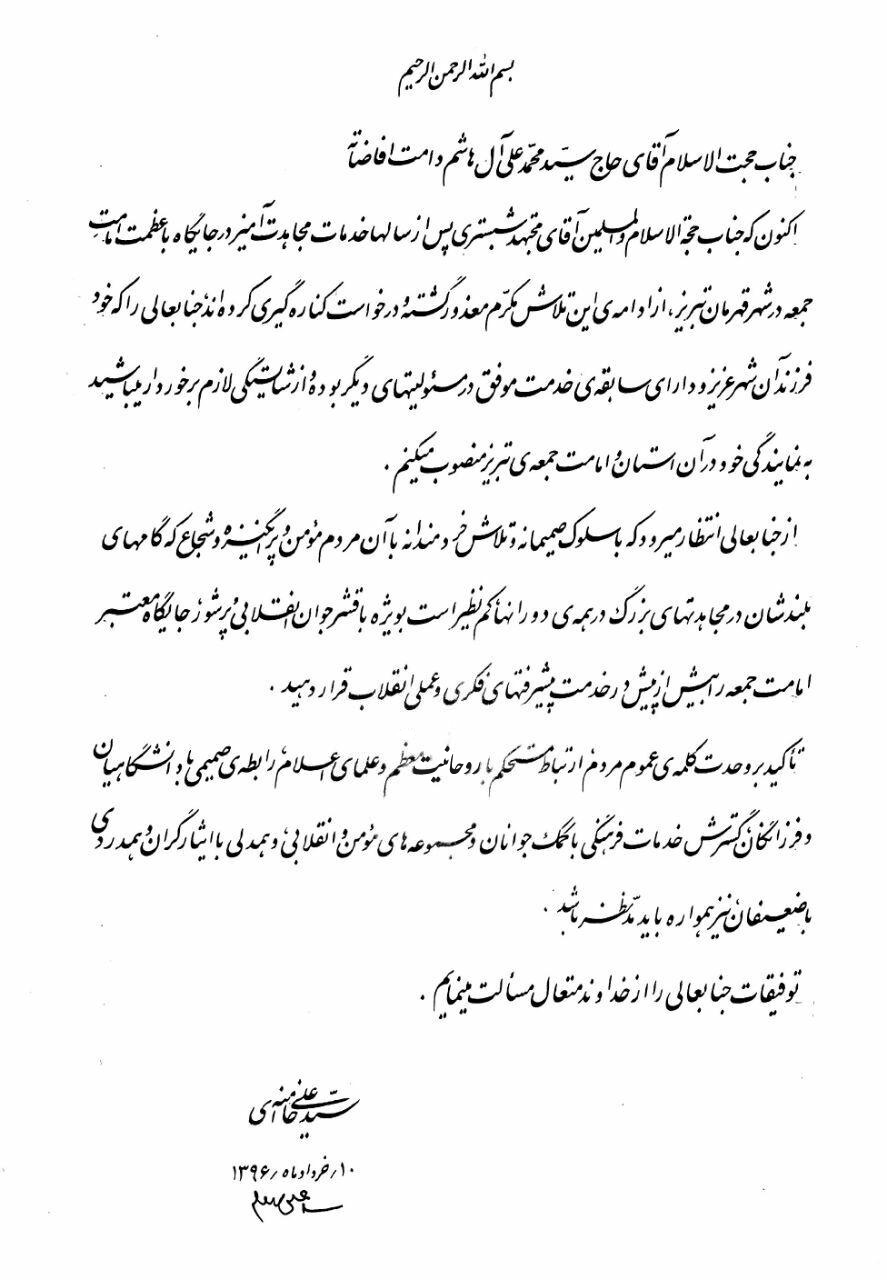 بسم الله الرحمن الرحیم
جناب حجت الاسلام آقای حاج سیّد محمّد علی آل هاشم دامت افاضاته
اکنون که جناب حجة الاسلام والمسلمین آقای مجتهد شبستری پس از سالها خدمات مجاهدت آمیز در جایگاه باعظمت امامت
جمعه در شهر قهرمان تبریز، از ادامه‌ی این تلاش مکرّم معذور گشته و درخواست کناره گیری کرده‌اند، جنابعالی را که خود
فرزند آن شهر عزیز و دارای سابقه‌ی خدمت موفق در مسئولیتهای دیگر بوده و از شایستگی لازم برخوردار میباشید
به نمایندگی خود در آن استان و امامت جمعه‌ی تبریز منصوب میکنم.
از جنابعالی انتظار میرود که با سلوک صمیمانه و تلاش خردمندانه با آن مردم مؤمن و پرانگیزه و شجاع که گامهای
بلندشان در مجاهدتهای بزرگ در همه‌ی دورانها کم نظیر است بویژه با قشر جوان انقلابی و پرشور، جایگاه معتبر
امامت جمعه را بیش از پیش در خدمت پیشرفتهای فکری و عملی انقلاب قرار دهید.
تأکید بر وحدت کلمه‌ی عموم مردم، ارتباط مستحکم با روحانیت معظم و علمای اعلام، رابطه‌ی صمیمی با دانشگاهیان
و فرزانگان، گسترش خدمات فرهنگی با کمک جوانان و مجموعه های مؤمن و انقلابی، و همدلی با ایثارگران و همدردی
با ضعیفان نیز همواره باید مدّ نظر باشد.
توفیقات جنابعالی را از خداوند متعال مسألت مینمایم.
سیّد علی خامنه‌ای
۱۰/خردادماه/۱۳۹۶